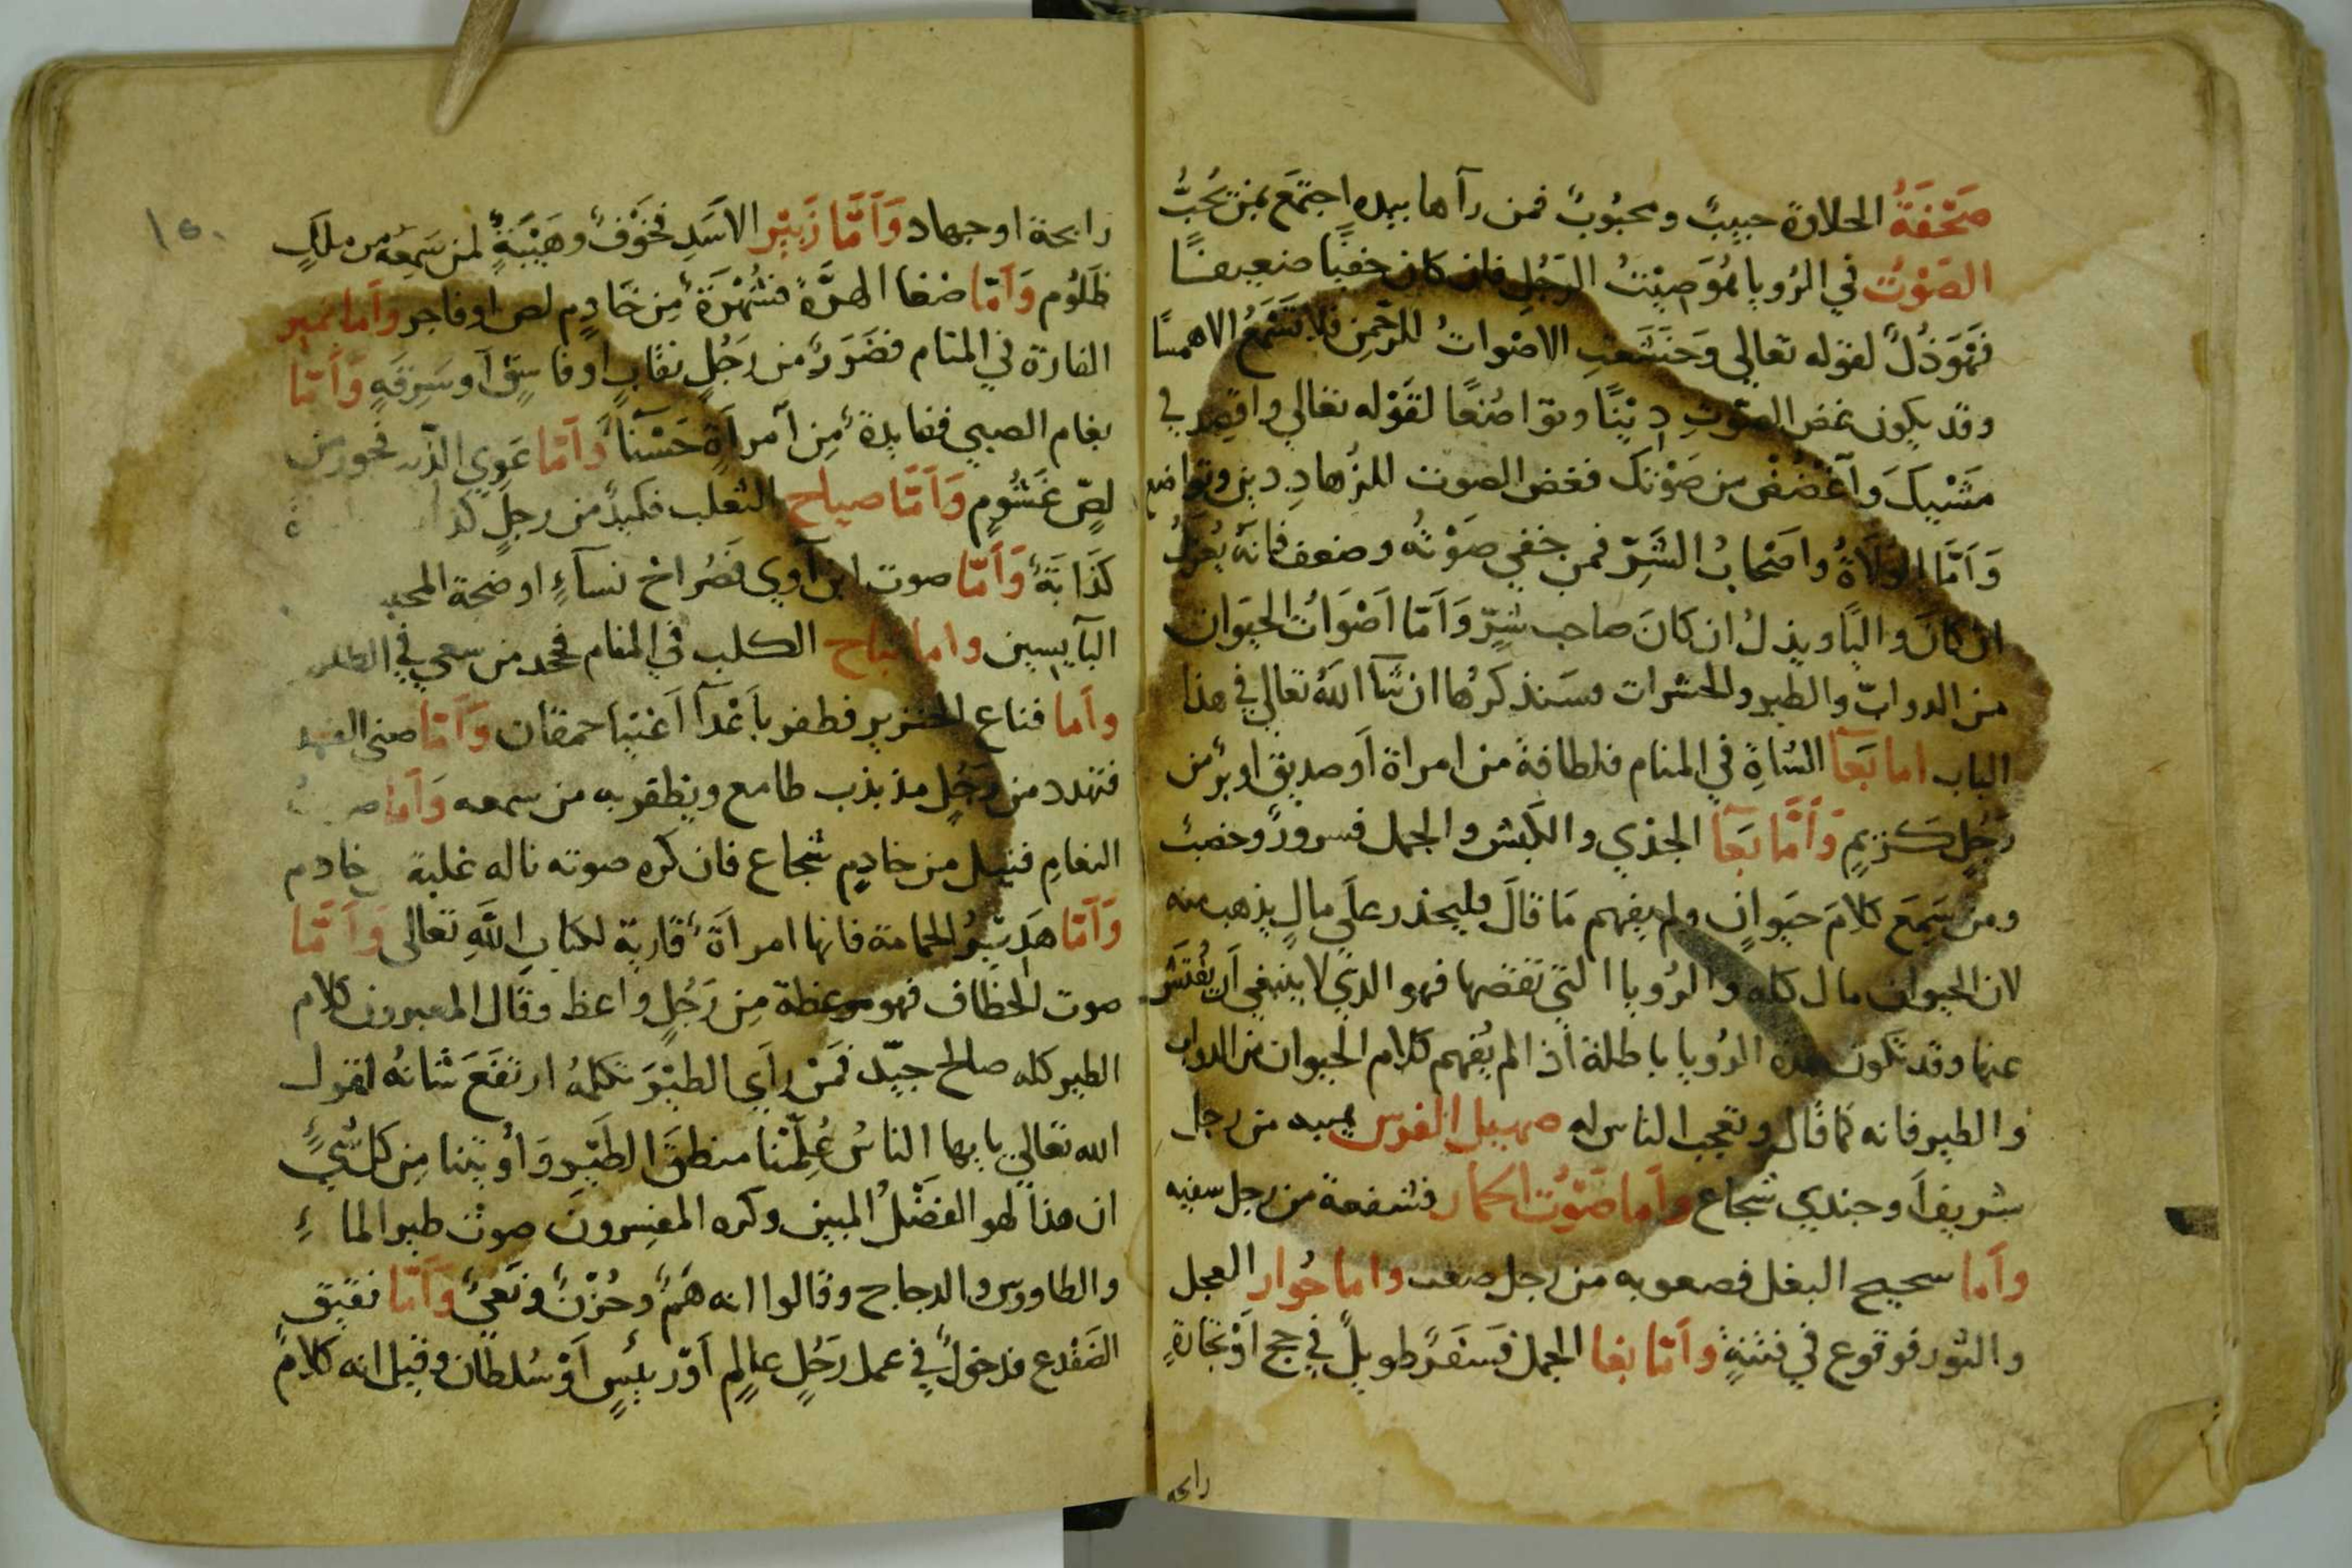 صَحْفَةُ الحلاوة حبيبٌ ومحبُوبٌ فمن رآها بيده اجتمَع بمن يُحِبُّ
الصَوْتُ في الرُويا هُوَ صِيْتُ الرَجُلِ فان كان خفيًا ضعيفًا
فَهُوَ ذُلٌ لقوله تعالى وَخَشَعَتِ الاصْواتُ للرَّحْمنِ فلا تَسْمَعُ الا همسًا
وقد يكون غض الصَوْتِ دِيْنًا وتواضُعًا لقَوْله تعالى واقصِد في
مَشْيِكَ وَاَغْضُضْ من صَوْتِكَ فغض الصوت للزُهادِ دين وتواضع
وَاَمَّا الوُلَاةُ واصْحابُ الشَرِّ فمن خفي صَوْتُه وضعف فانه يُعزَلُ
ان كَانَ واليًا ويذلُ ان كانَ صاحب شرٍّ وَاَمّا اَصْوَاتُ الحيَوان
من الدوابّ والطير والحشرات فسَنذكرُها ان شَآ اللهُ تعالى في هذا
الباب اما ثغآ الشاةِ في المنام فلطافةٌ من امراة اَو صديق او برٌ من
رَجُلٍ كَريمٍ وَاَمَّا ثغَآ الجدي والكَبش والجمل فسرورٌ وخصبٌ
ومن سَمِعَ كلامَ حيَوانٍ ولم يفهم مَا قالَ فليحذر علَى مالٍ يذهب منه
لان الحيوان مال كله والرُويا التي تقصّها فهو الذي لا ينبغي اَن يُفتَش
عنها وقد تكون هذه الرُويا باطلة اذا لم يُفهم كلام الحيوان من الدواب
والطير فانه كما قال وتعجب الناس له صهيل الفرس هيبه من رجل
شريف اَو جندي شجاع واَما صَوْتُ الحمار فشفعة من رجل سفيه
واَما سحيح البغل فصعوبه من رجل صعب واما خُوار العجل
والثور فوقوع في فتنةٍ واَمّا رغا الجمل فسَفرٌ طويلٌ في حج اَوْ تجارةٍ
رابحه
١٥٠
رابحة او جهاد وَاَمَّا زَئيْر الاسَدِ فخَوْفٌ وهَيْبَةٌ لمن سَمِعَه من ملكٍ
ظَلُوم وَاَمّا ضغا الهرَّة فشُهْرَة مِن خَادِمٍ لص او فاجر واَما نمير
الفارة في المنام فضَرَرٌ من رَجُلٍ نقابٍ او فاسِقْ اَو سَرِقَةٍ وَاَمّا
بغام الصبي ففايدةٌ مِن اَمراَةٍ حَسْنآ وَاَمّا عَوي الذيب فجور من
لصّ غَشُومٍ وَاَمّا صياح الثعلب فكيدٌ من رجلٍ كذ
كَذَابَةٍ وَاَمّا صوت ابن آوي فَصُراخ نسآءٍ او ضجة
البآيسين واما نباح الكلب في المنام فحد من سعي في الظلم
واَما قناع الخنزير فظفر باَعْدآ اَغنيا حمقان وَاَمّا صغى الفهد
فتهدد من رَجُلٍ مذبذب طامع ويظفر به من سمعه وَاَما
النعامِ فنيل من خادِمٍ شجاع فان كره صوته ناله غلبة خادم
وَاَمّا هَديْرُ الحمامة فانها امراَة قارية لكتابِ اللهِ تعالى وَاَمّا
صوت الخطاف فهو موعظة مِن رَجُلٍ واعظ وقال المعبرون كلام
الطير كله صالح جيّد فمَنْ راَي الطيْرَ تكلمُه ارتفَعَ شانُه لقول
الله تعالى يايها الناسُ عُلِّمْنا منطقَ الطَيْر وَاُوتينا مِن كل شيٍ
ان هذا لهو الفضْلُ المبين وكره المفسرونَ صوت طير الماءِ
والطاووس والدجاج وقالوا انه هَمٌ وحُزْنٌ ونَعيٌ وَاَمّا نقيق
الضفْدع فدخولٌ في عمل رَجُلٍ عالِمٍ اَوْ رئيسٍ اَوْ سُلطان وقيل انه كلامٌ